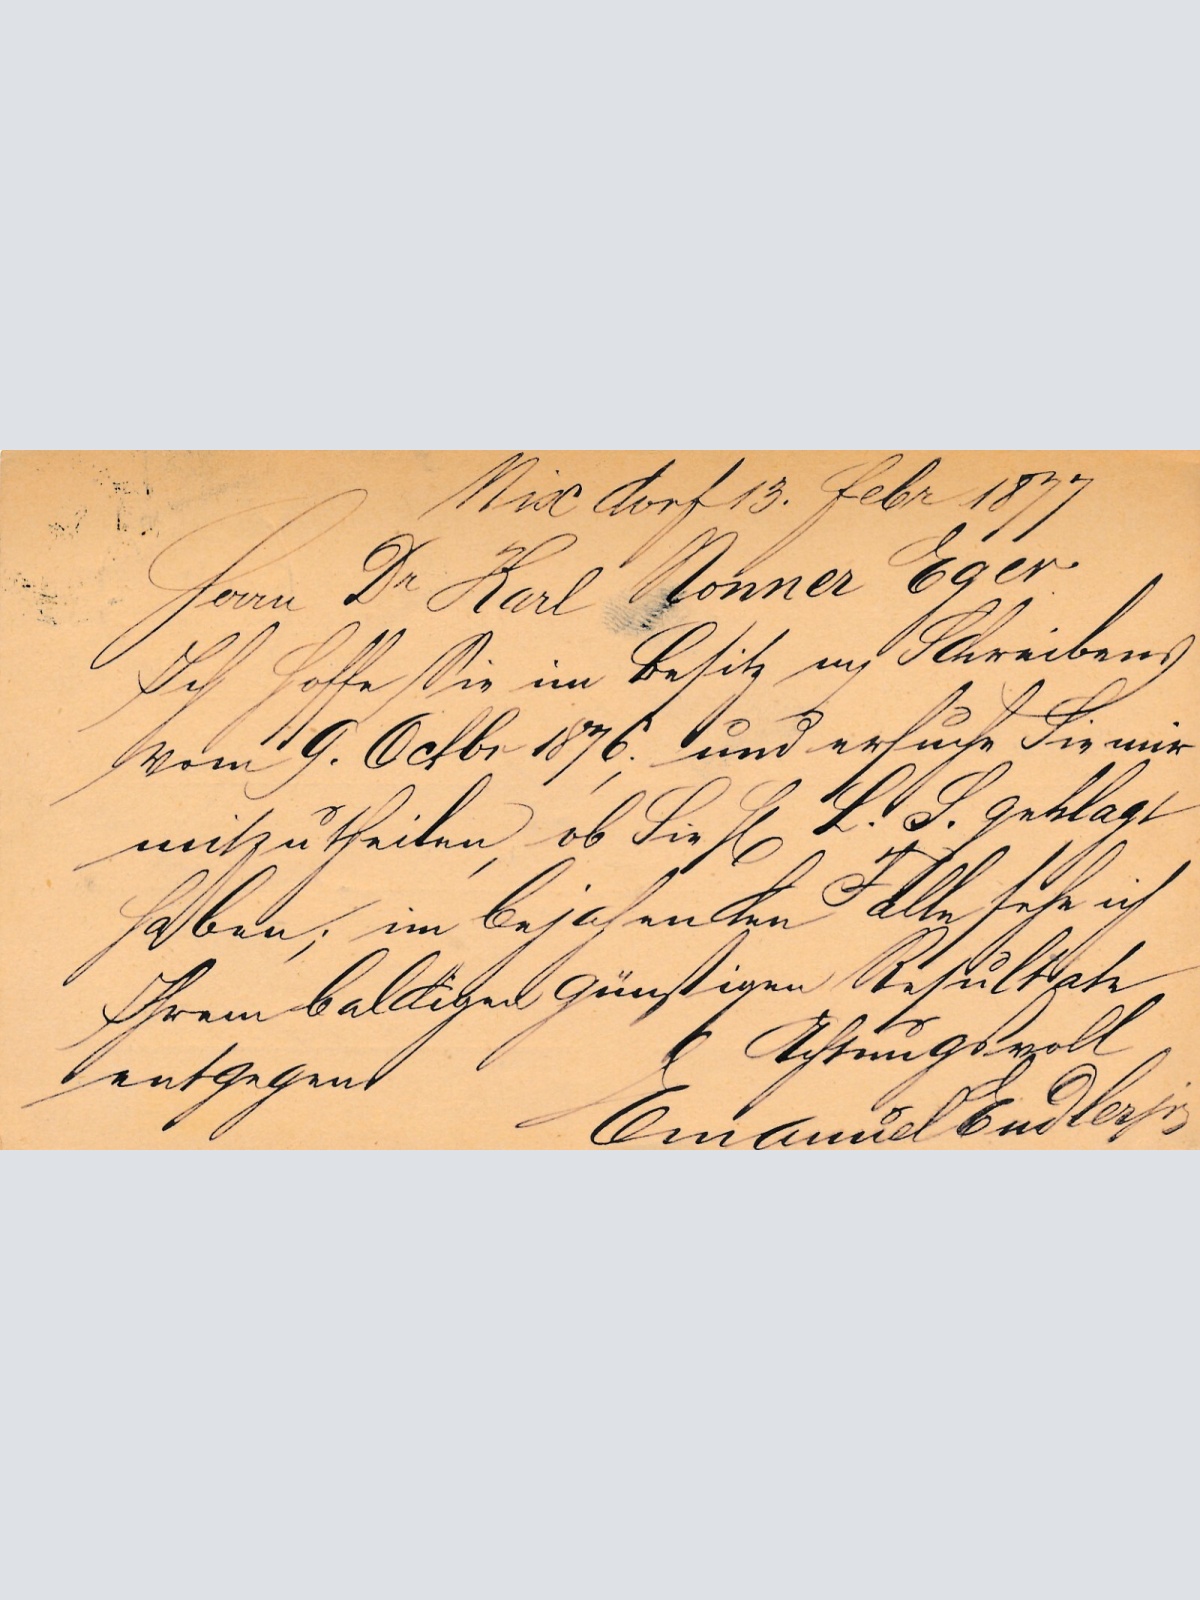 Nixdorf 13. Febr 1877
Herrn Dr Karl Nonner Eger.
Ich hoffe Sie im Besitz m Schreibens
vom 9. Octbr 1876. und ersuche Sie mir
mitzutheilen, ob Sie H L. S. geklagt
haben; im bejahenden Falle sehe ich
Ihrem baldigen günstigen Resultate
entgegen Achtungsvoll
Emanuel Endler